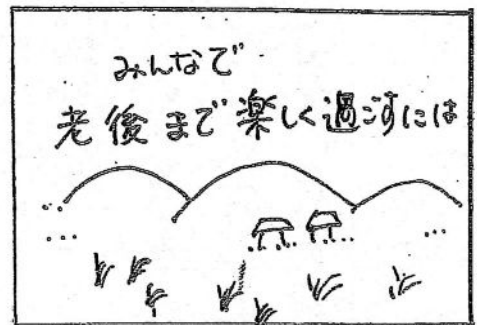 みんなで
老後まで楽しく過ごすには